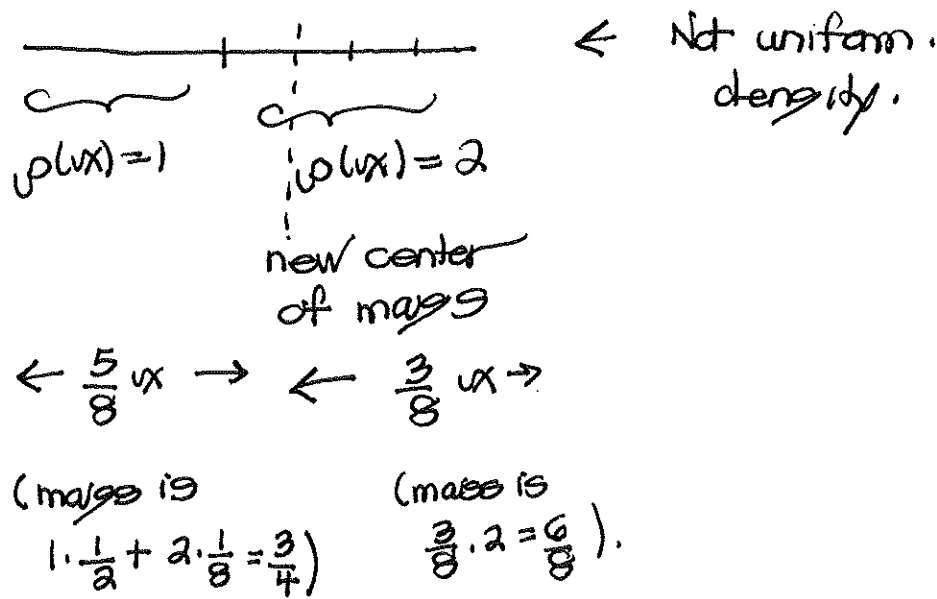 ← Not uniform.
density.
ρ(x) = 1 ρ(x) = 2
new center
of mass
← 5/8 x → ← 3/8 x →
(mass is (mass is
1·1/2 + 2·1/8 = 3/4) 3/8·2 = 6/8).